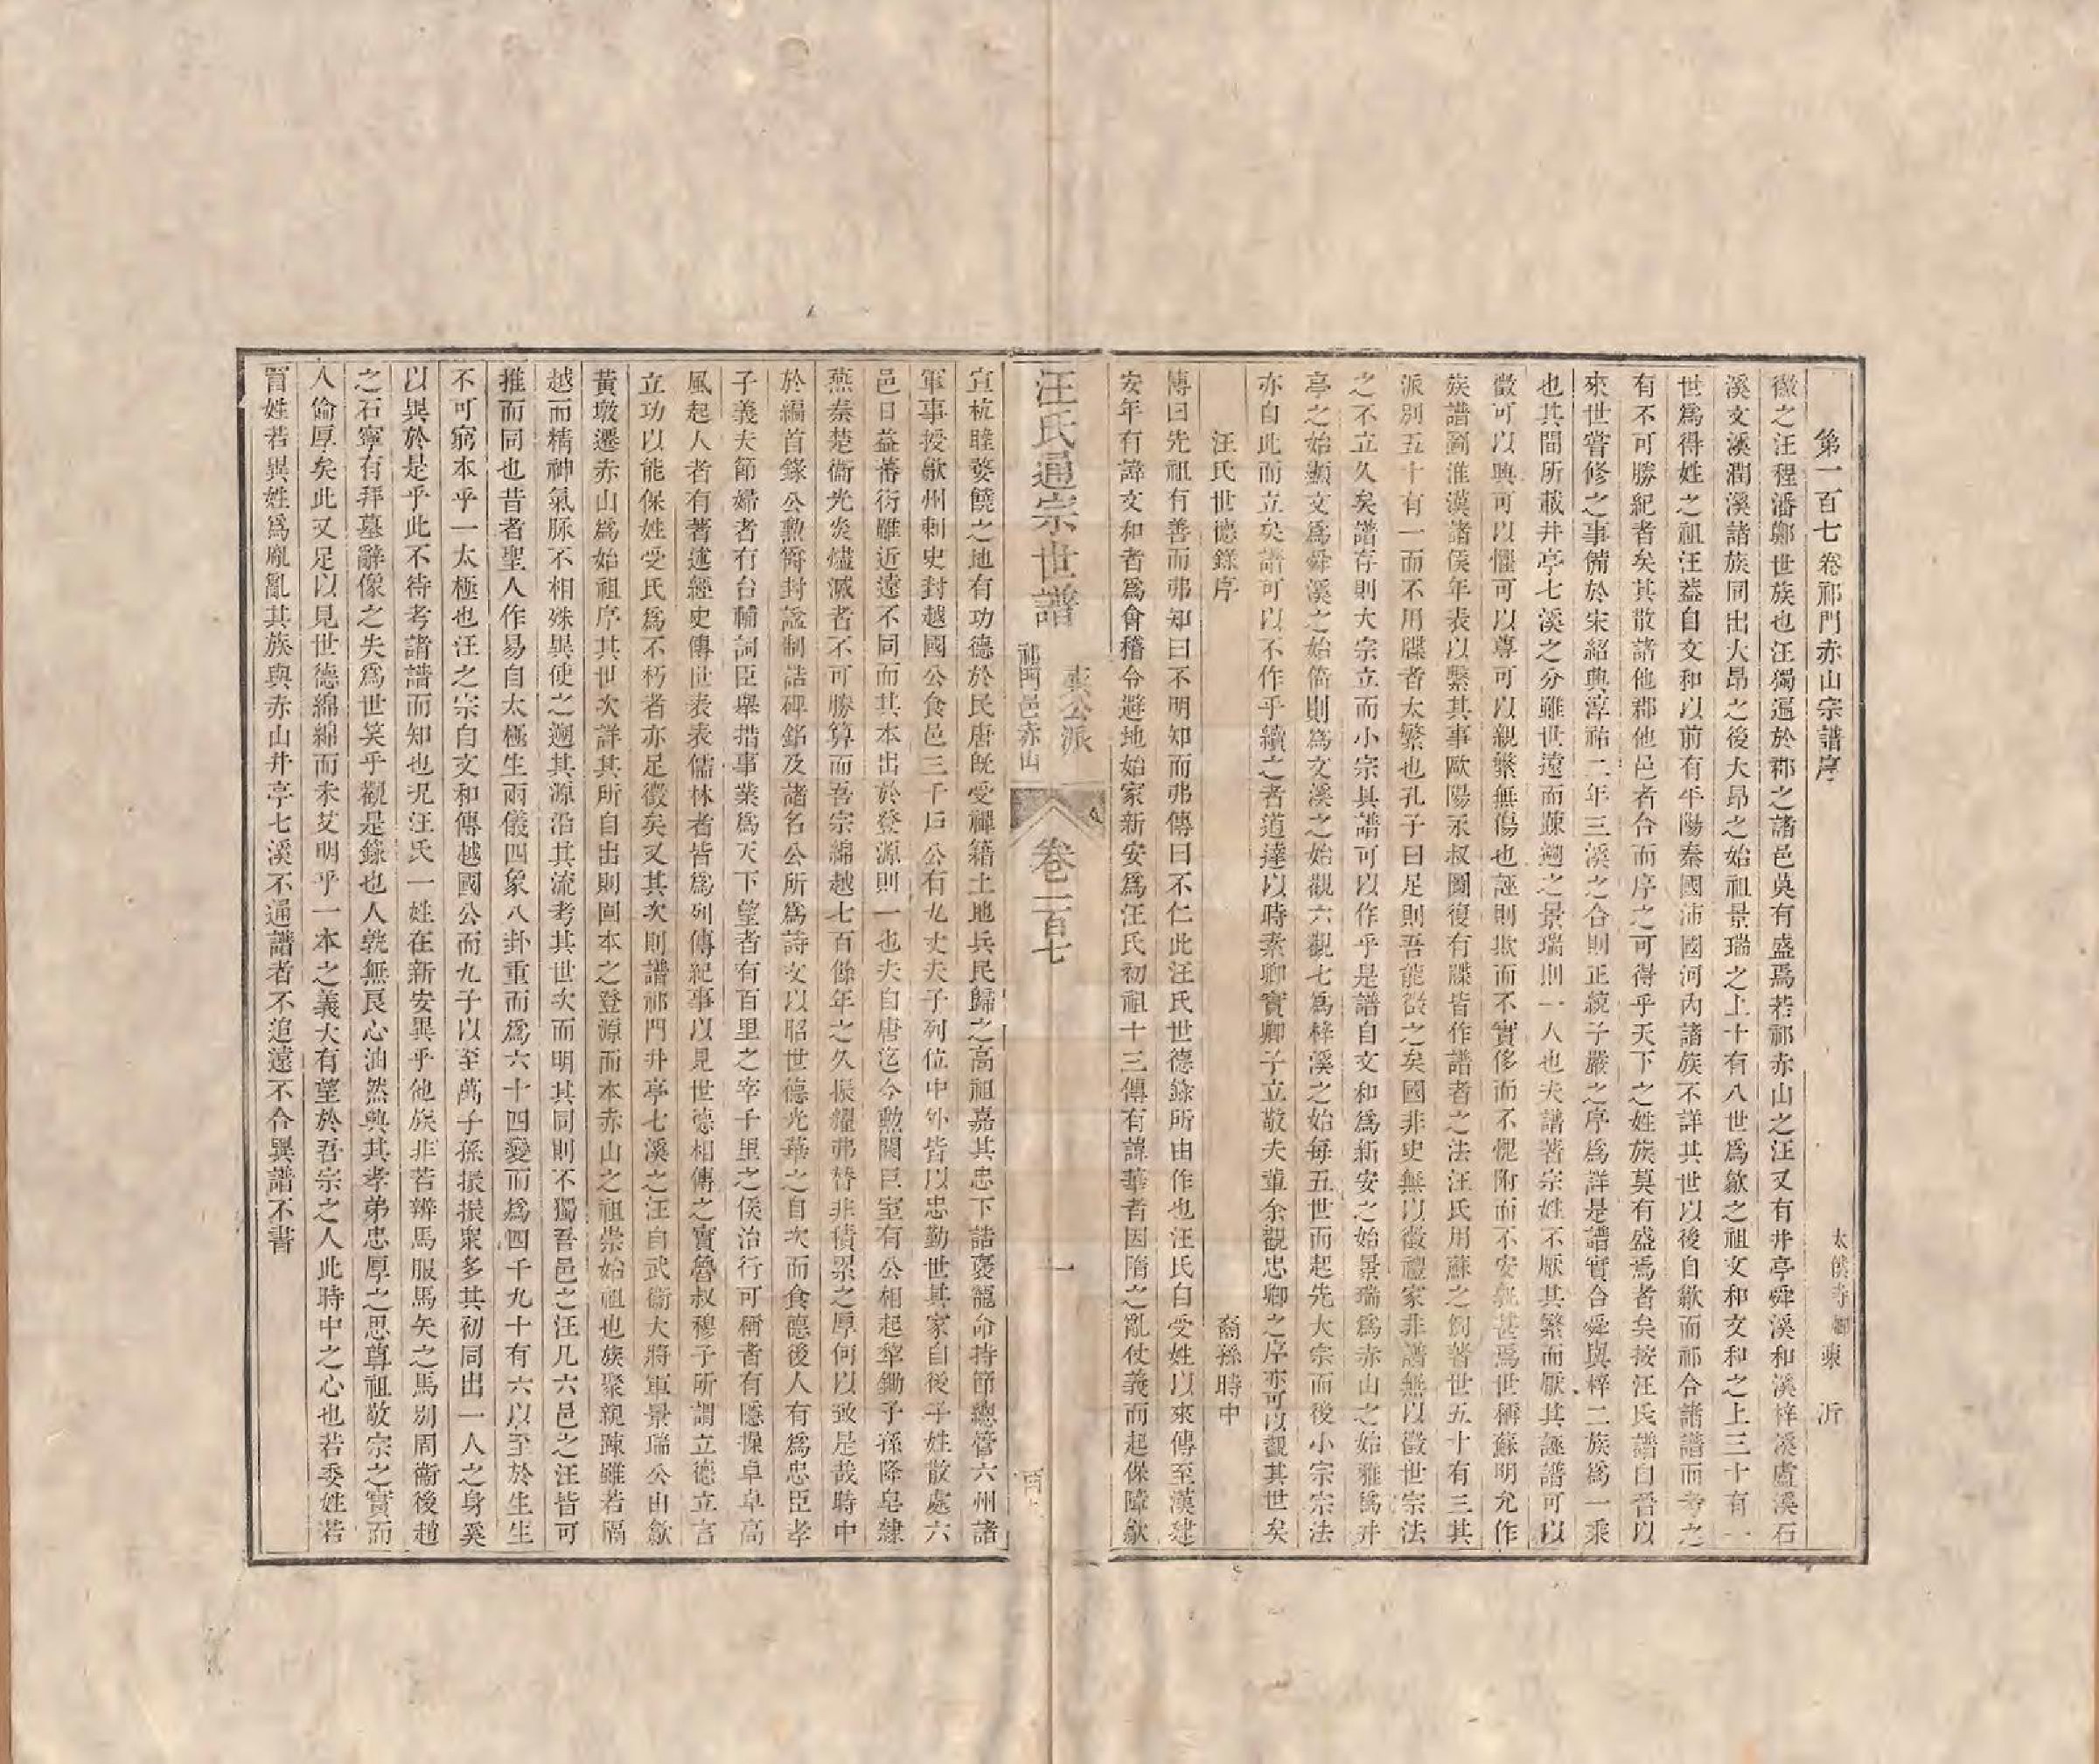 第一百七卷祁門赤山宗譜序
太僕寺卿 東 沂
徽之汪程潘鄭世族也汪獨遍於郡之諸邑莫有盛焉若祁赤山之汪又有井亭舜溪和溪梓溪盧溪石
溪文溪潤溪諸族同出大昂之後大昂之始祖景瑞之上十有八世爲歙之祖文和文和之上三十有一
世爲得姓之祖汪葢自文和以前有平陽秦國沛國河內諸族不詳其世以後自歙而祁合諸譜而考之
有不可勝紀者矣其散諸他郡他邑者合而序之可得乎天下之姓族莫有盛焉者矣按汪氏譜自晉以
來世嘗修之事備於宋紹興淳祐二年三溪之合則正統子嚴之序爲詳是譜實合舜與梓二族爲一乘
也其間所載井亭七溪之分雖世遠而踈遡之景瑞則一人也夫譜著宗姓不厭其繁而厭其誣譜可以
徵可以興可以懼可以尊可以親繁無傷也誣則欺而不實侈而不愧附而不安孰甚焉世稱蘇明允作
族譜圖淮漢諸侯年表以繫其事歐陽永叔圖復有牒皆作譜者之法汪氏用蘇之例著世五十有三其
派別五十有一而不用牒者太繁也孔子曰足則吾能徵之矣國非史無以徵禮家非譜無以徵世宗法
之不立久矣譜存則大宗立而小宗具譜可以作乎是譜自文和爲新安之始景瑞爲赤山之始雅爲井
亭之始顯文爲舜溪之始簡則爲文溪之始觀六觀七爲梓溪之始每五世而起先大宗而後小宗宗法
亦自此而立矣譜可以不作乎續之者道達以時素卿實卿子立敬夫輩余觀忠卿之序亦可以觀其世矣
汪氏世德錄序
裔孫時中
傳曰先祖有善而弗知曰不明知而弗傳曰不仁此汪氏世德錄所由作也汪氏自受姓以來傳至漢建
安年有諱文和者爲會稽令避地始家新安爲汪氏初祖十三傳有諱華者因隋之亂仗義而起保障歙
汪氏通宗世譜
爽公派
祁門邑赤山
卷一百七
一
宣杭睦婺饒之地有功德於民唐既受禪籍土地兵民歸之高祖嘉其忠下誥褒寵命持節總管六州諸
軍事授歙州刺史封越國公食邑三千戶公有九丈夫子列位中外皆以忠勤世其家自後子姓散處六
邑日益蕃衍雖近遠不同而其本出於登源則一也夫自唐迄今勲閥巨室有公相起犂鋤子孫降皂隸
燕秦楚衞光炎燼滅者不可勝算而吾宗綿越七百餘年之久振耀弗替非積累之厚何以致是哉時中
於編首錄公勲爵封謚制誥碑銘及諸名公所爲詩文以昭世德光華之自次而食德後人有爲忠臣孝
子義夫節婦者有台輔詞臣舉措事業爲天下望者有百里之宰千里之侯治行可稱者有隱操卓卓高
風起人者有著述經史傳世表表儒林者皆爲列傳紀事以見世德相傳之實魯叔穆子所謂立德立言
立功以能保姓受氏爲不朽者亦足徵矣又其次則譜祁門井亭七溪之汪自武衞大將軍景瑞公由歙
黃墩遷赤山爲始祖序其世次詳其所自出則圖本之登源而本赤山之祖崇始祖也族聚親踈雖若隔
越而精神氣脉不相殊異使之遡其源沿其流考其世次而明其同則不獨吾邑之汪凡六邑之汪皆可
推而同也昔者聖人作易自太極生兩儀四象八卦重而爲六十四變而爲四千九十有六以至於生生
不可窮本乎一太極也汪之宗自文和傳越國公而九子以至萬子孫振振衆多其初同出一人之身奚
以異於是乎此不待考諸譜而知也况汪氏一姓在新安異乎他族非若辨馬服馬矢之馬別周衞後趙
之石寧有拜墓辭像之失爲世笑乎觀是錄也人孰無良心油然興其孝弟忠厚之思尊祖敬宗之實而
人倫厚矣此又足以見世德綿綿而未艾明乎一本之義大有望於吾宗之人此時中之心也若委姓若
冒姓若異姓爲胤亂其族與赤山井亭七溪不通譜者不追遠不合異譜不書